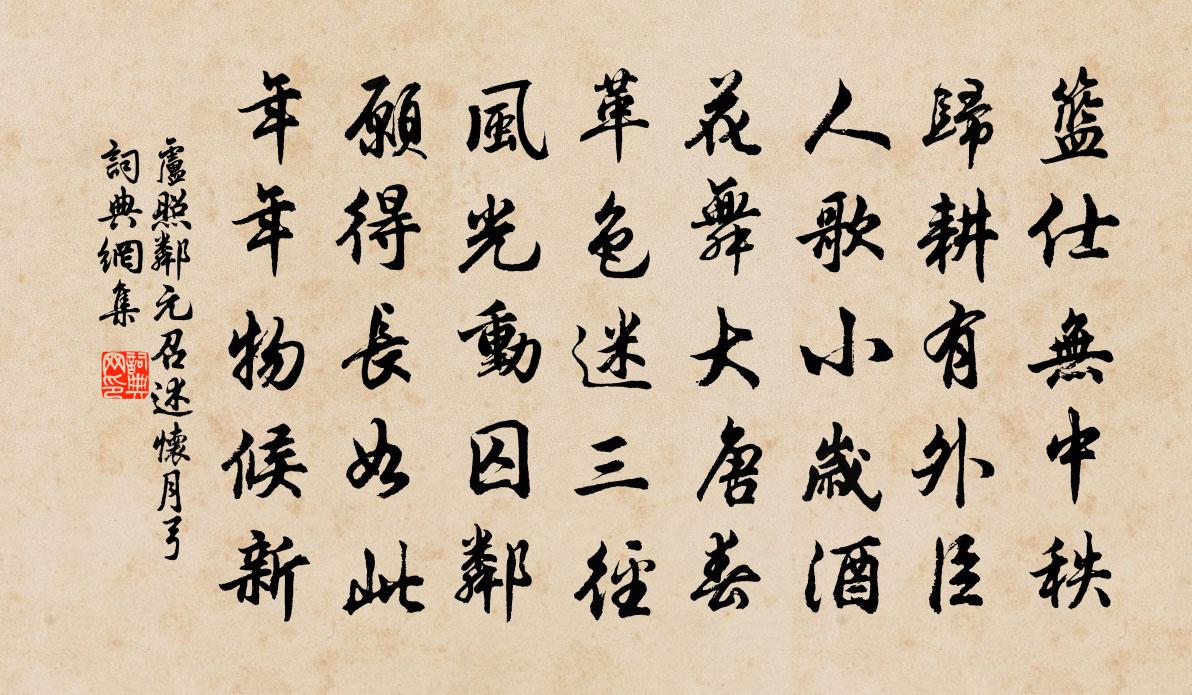 籃仕無中秩
歸耕有外臣
人歌小歲酒
花舞大唐春
革色迷三徑
風光動囚鄰
願得長如此
年年物候新
盧照鄰元召述懷月弓
詞典網集
詞典网印